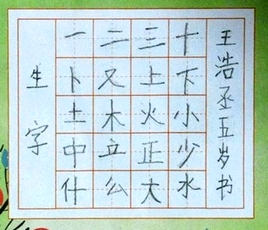 生字
一二三十
卜又上下
土木火小
中立正少
什公大水
王浩丞五岁书